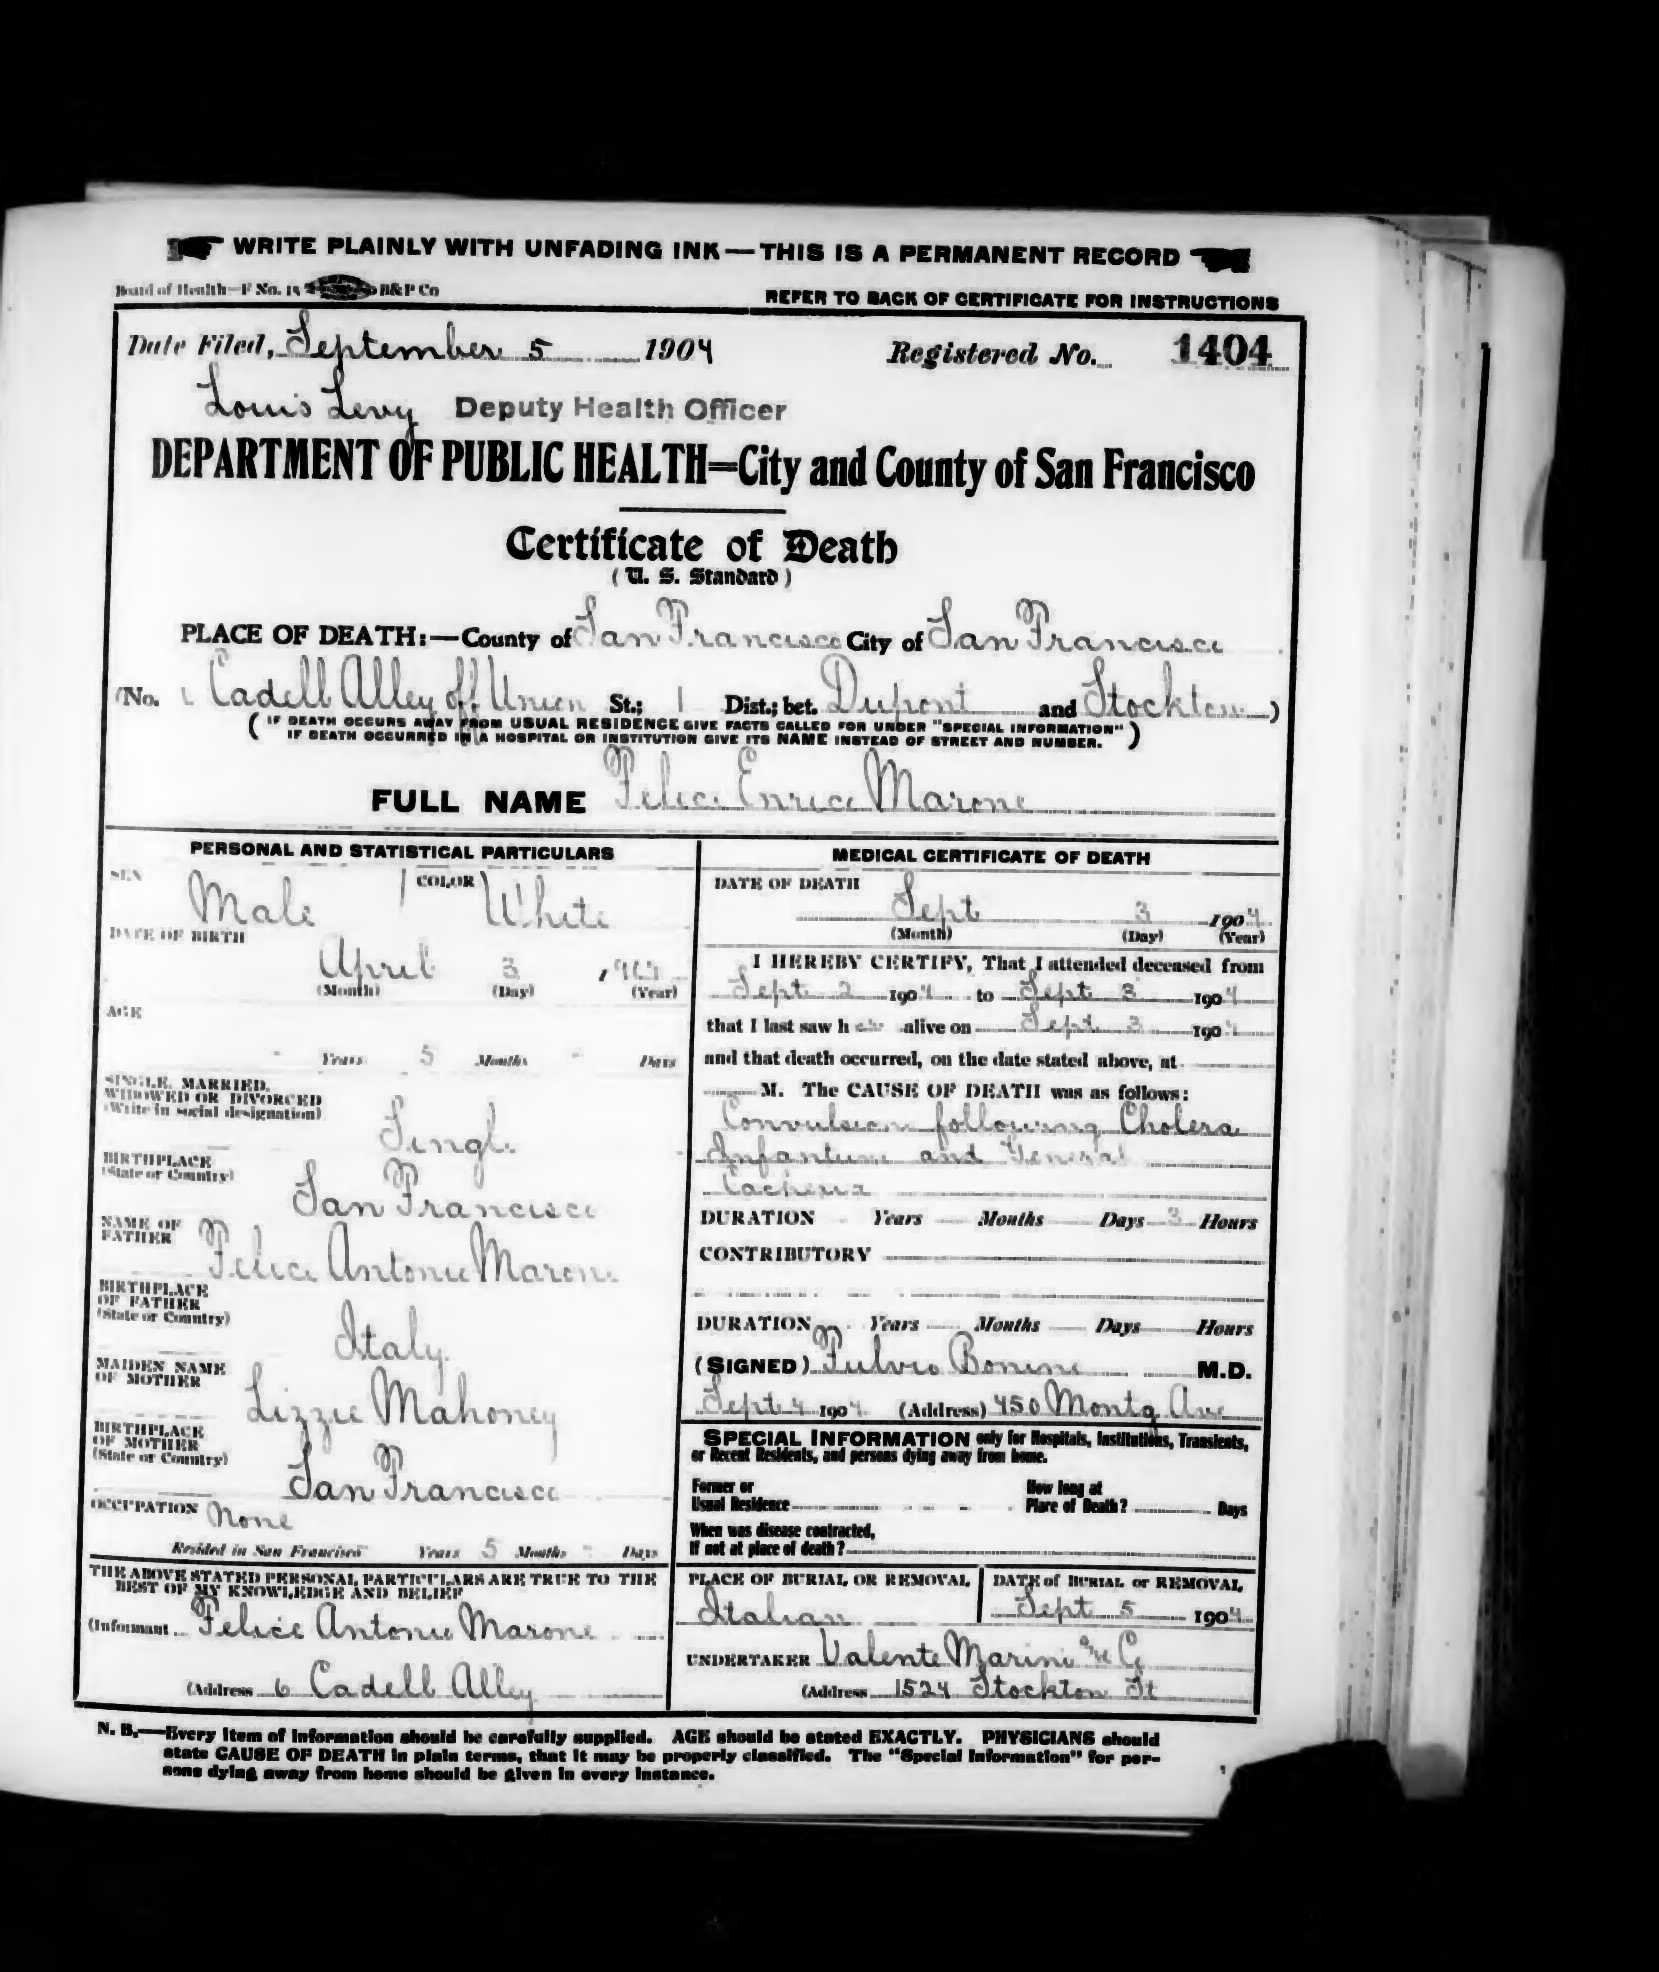 WRITE PLAINLY WITH UNFADING INK — THIS IS A PERMANENT RECORD
Board of Health—F No. 15 B&P Co
REFER TO BACK OF CERTIFICATE FOR INSTRUCTIONS
Date Filed, September 5 1904 Registered No. 1404
Louis Levy Deputy Health Officer
DEPARTMENT OF PUBLIC HEALTH=City and County of San Francisco
Certificate of Death
( U. S. Standard )
PLACE OF DEATH:—County of San Francisco City of San Francisco
(No. Cadell Alley off Union St.; 1 Dist.; bet. Dupont and Stockton )
( IF DEATH OCCURS AWAY FROM USUAL RESIDENCE GIVE FACTS CALLED FOR UNDER "SPECIAL INFORMATION"
IF DEATH OCCURRED IN A HOSPITAL OR INSTITUTION GIVE ITS NAME INSTEAD OF STREET AND NUMBER. )
FULL NAME Felice Enrico Marone
PERSONAL AND STATISTICAL PARTICULARS
SEX Male COLOR White
DATE OF BIRTH
April 3 , 
(Month) (Day) (Year)
AGE
- Years 5 Months - Days
SINGLE, MARRIED,
WIDOWED OR DIVORCED
(Write in social designation)
Single
BIRTHPLACE
(State or Country)
San Francisco
NAME OF
FATHER
Felice Antonio Marone
BIRTHPLACE
OF FATHER
(State or Country)
Italy
MAIDEN NAME
OF MOTHER
Lizzie Mahoney
BIRTHPLACE
OF MOTHER
(State or Country)
San Francisco
OCCUPATION None
Resided in San Francisco - Years 5 Months - Days
THE ABOVE STATED PERSONAL PARTICULARS ARE TRUE TO THE
BEST OF MY KNOWLEDGE AND BELIEF
(Informant Felice Antonio Marone
(Address 6 Cadell Alley
MEDICAL CERTIFICATE OF DEATH
DATE OF DEATH
Sept 3 1904
(Month) (Day) (Year)
I HEREBY CERTIFY, That I attended deceased from
Sept 2 1904 to Sept 3 1904
that I last saw h alive on Sept 3 1904
and that death occurred, on the date stated above, at
M. The CAUSE OF DEATH was as follows:
Convulsion following Cholera
Infantum and General
Cachexia
DURATION Years Months Days 3 Hours
CONTRIBUTORY
DURATION Years Months Days Hours
(SIGNED) Fulvio Bonini M.D.
Sept 4 1904 (Address) 450 Montg Ave
SPECIAL INFORMATION only for Hospitals, Institutions, Transients,
or Recent Residents, and persons dying away from home.
Former or
Usual Residence
How long at
Place of Death? Days
When was disease contracted,
If not at place of death?
PLACE OF BURIAL OR REMOVAL
Italian
DATE of BURIAL or REMOVAL
Sept 5 1904
UNDERTAKER Valente Marini & Co
(Address 1524 Stockton St
N. B.—Every item of information should be carefully supplied. AGE should be stated EXACTLY. PHYSICIANS should
state CAUSE OF DEATH in plain terms, that it may be properly classified. The "Special Information" for per-
sons dying away from home should be given in every instance.